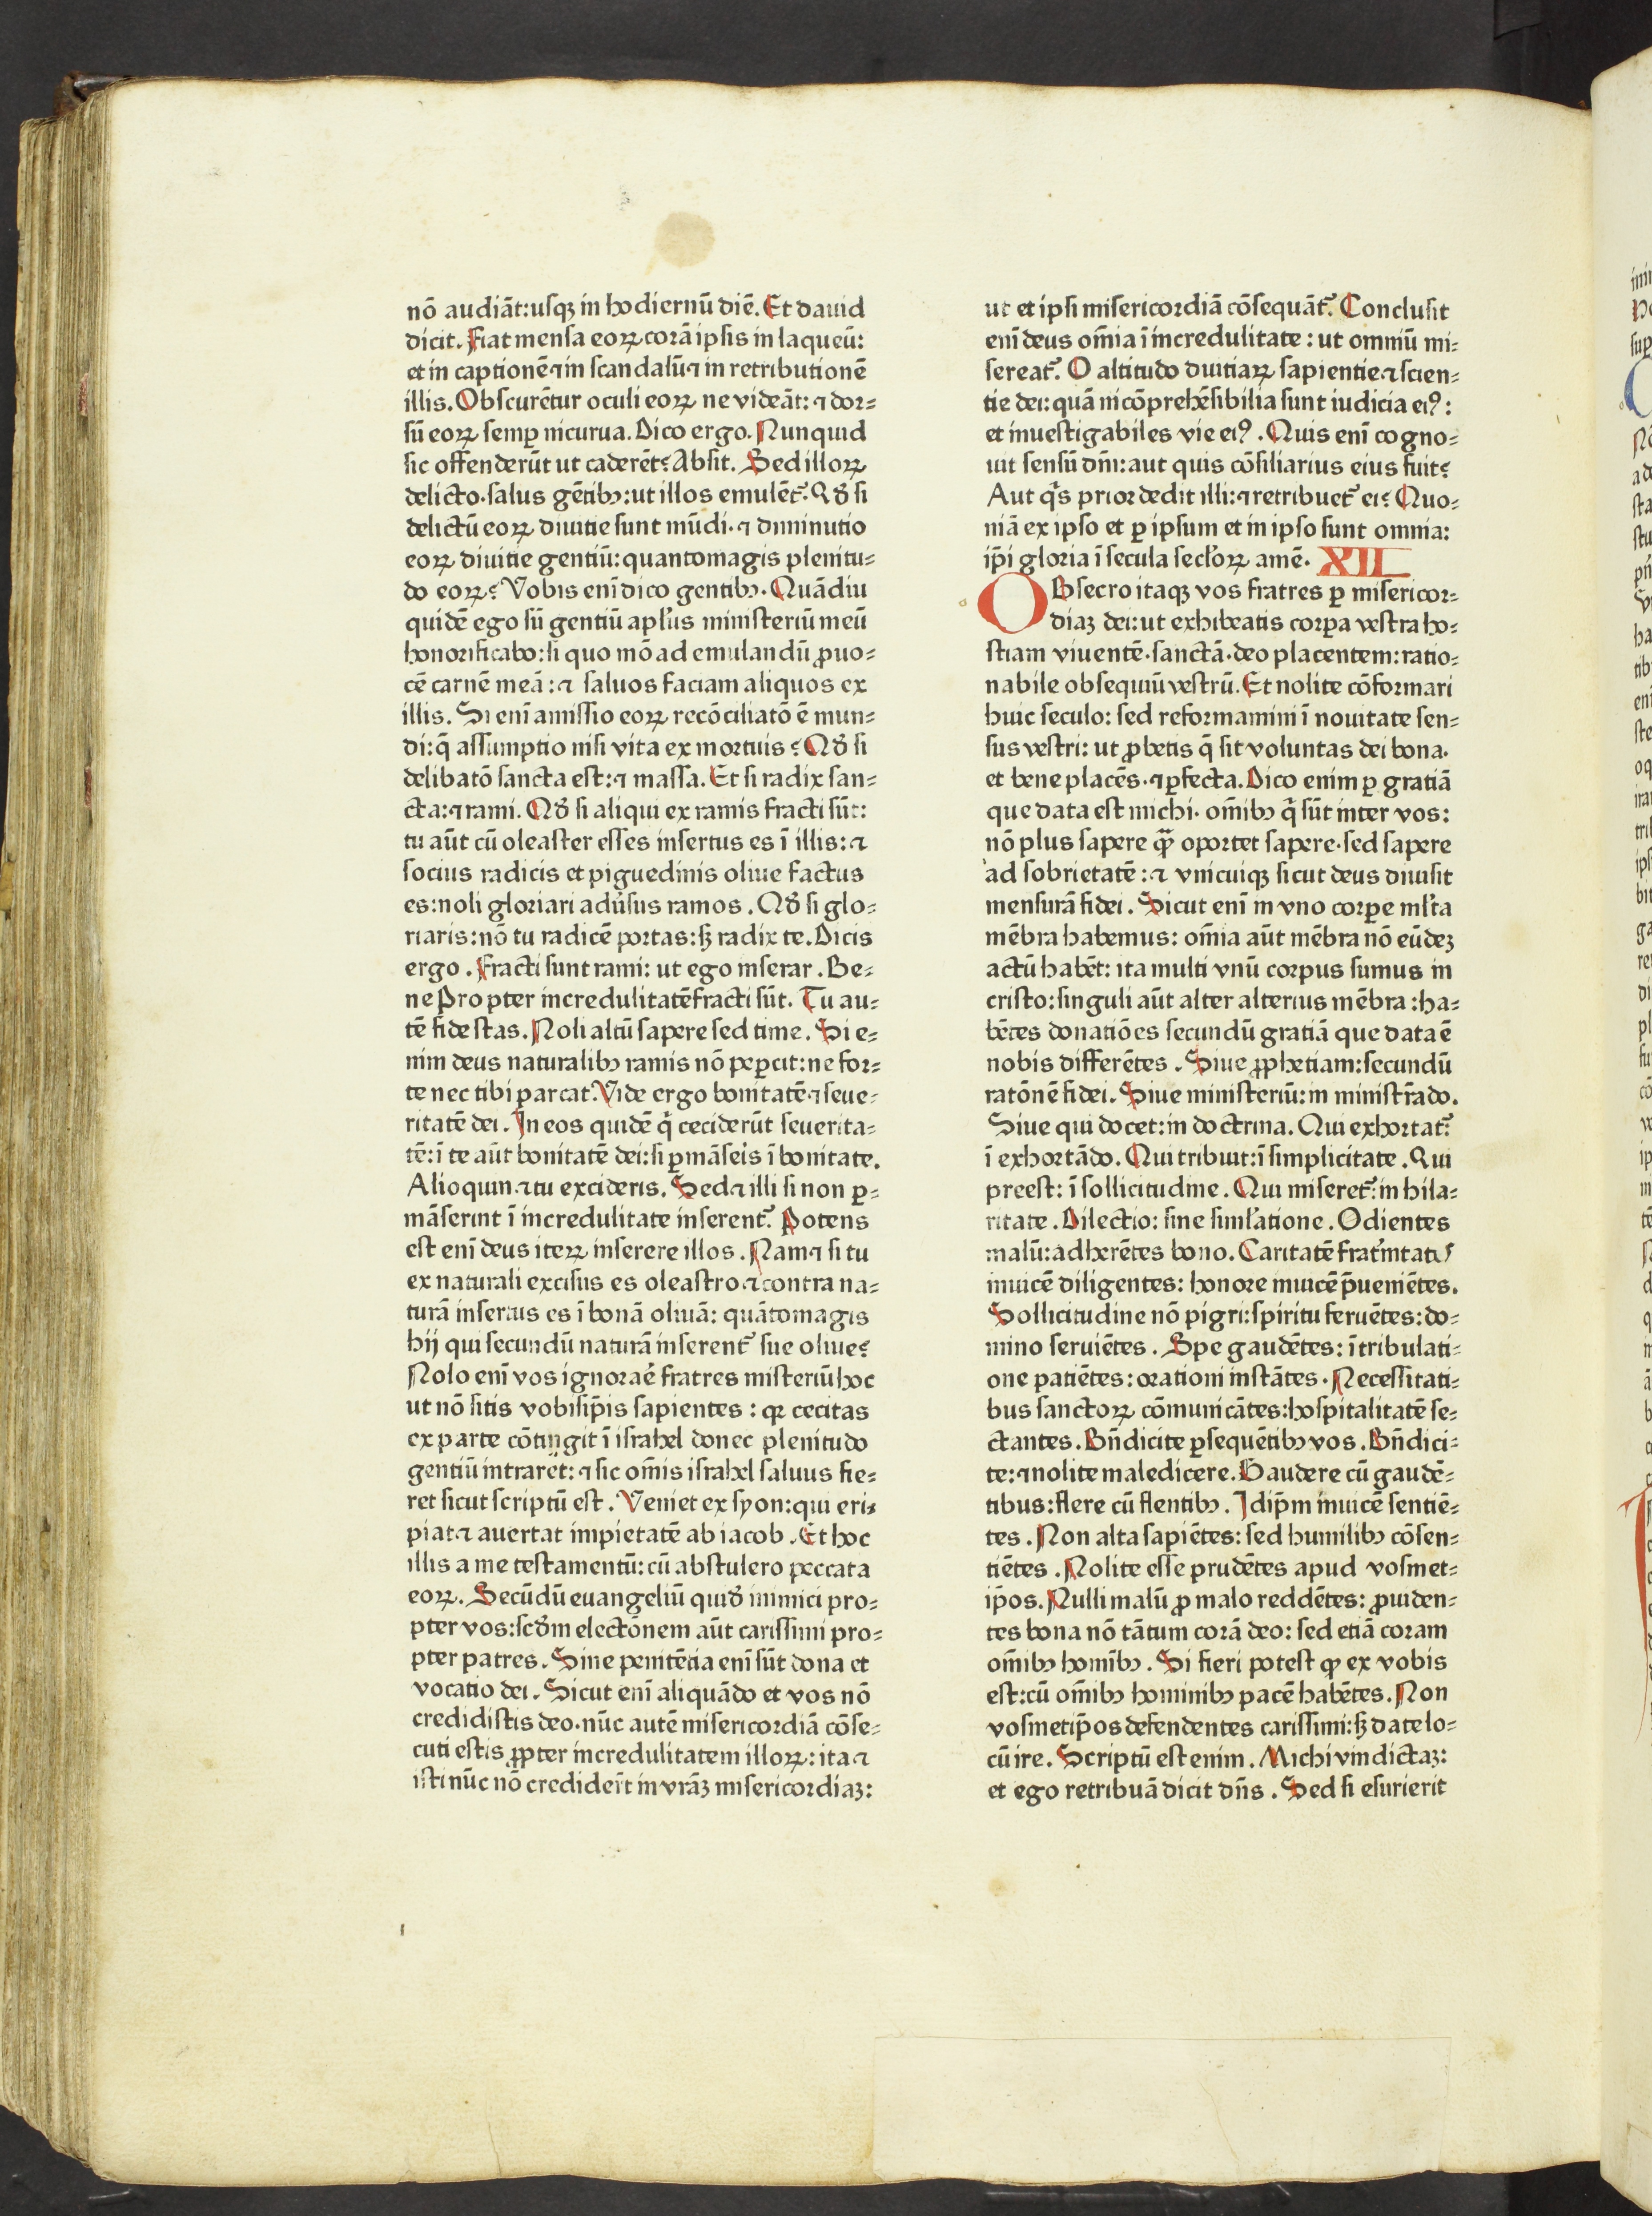 nō audiāt: usqꝫ in hodiernū diē. Et dauid
dicit. Fiat mensa eoꝝ corā ipsis in laqueū:
et in captionē ⁊ in scandalū ⁊ in retributionē
illis. Obscurētur oculi eoꝝ ne videāt: ⁊ dor⸗
sū eoꝝ semꝑ incurua. Dico ergo. Nunquid
sic offenderūt ut caderēt? Absit. Sed illoꝝ
delicto· salus gētibꝫ: ut illos emulēt᷑. Qđ si
delictū eoꝝ diuitie sunt mūdi· ⁊ diminutio
eoꝝ diuitie gentiū: quantomagis plenitu⸗
do eoꝝ? Vobis enī dico gentibꝫ. Quādiu
quidē ego sū gentiū apl̄us ministeriū meū
honorificabo: si quo mō ad emulandū ꝓuo⸗
cē carnē meā: ⁊ saluos faciam aliquos ex
illis. Si enī amissio eoꝝ recōciliatō ē mun⸗
di: q̄ assumptio nisi vita ex mortuis? Qđ si
delibatō sancta est: ⁊ massa. Et si radix san⸗
cta: ⁊ rami. Qđ si aliqui ex ramis fracti sūt:
tu aūt cū oleaster esses insertus es ī illis: ⁊
socius radicis et piguedinis oliue factus
es: noli gloriari aduˀsus ramos. Qđ si glo⸗
riaris: nō tu radicē portas: sꝫ radix te. Dicis
ergo. Fracti sunt rami: ut ego inserar. Be⸗
ne Propter incredulitatē fracti sūt. Tu au⸗
tē fide stas. Noli altū sapere sed time. Si e⸗
nim deus naturalibꝫ ramis nō peꝑcit: ne for⸗
te nec tibi parcat. Vide ergo bonitatē ⁊ seue⸗
ritatē dei. In eos quidē q̄ ceciderūt seuerita⸗
tē: ī te aūt bonitatē dei: si ꝑmāseˀis ī bonitate.
Alioquin ⁊ tu excideris. Sed ⁊ illi si non ꝑ⸗
māserint ī incredulitate inserent᷑. Potens
est enī deus iteꝝ inserere illos. Nam ⁊ si tu
ex naturali excisus es oleastro ⁊ contra na⸗
turā insertus es ī bonā oliuā: quātomagis
hij qui secundū naturā inserent᷑ sue oliue?
Nolo enī vos ignoraeˀ fratres misteriū hoc
ut nō sitis vobisip̄is sapientes: qꝛ cecitas
ex parte cōtingit ī israhel donec plenitudo
gentiū intraret: ⁊ sic om̄is israhel saluus fie⸗
ret sicut scriptū est. Veniet ex syon: qui eri⸗
piat ⁊ auertat impietatē ab iacob. Et hoc
illis a me testamentū: cū abstulero peccata
eoꝝ. Secūdū euangeliū quidē inimici pro⸗
pter vos: scđm electōnem aūt carissimi pro⸗
pter patres. Sine penitētia enī sūt dona et
vocatio dei. Sicut enī aliquādo et vos nō
credidistis deo· nūc autē misericordiā cōse⸗
cuti estis ꝓpter incredulitatem illoꝝ: ita ⁊
isti nūc nō credideīt in vrāꝫ misericordiaꝫ:
ut et ipsi misericordiā cōsequāt᷑. Conclusit
enī deus om̄ia ī incredulitate: ut omniū mi⸗
sereat᷑. O altitudo diuitiaꝝ sapientie ⁊ scien⸗
tie dei: quā incōprehēsibilia sunt iudicia eiꝰ:
et inuestigabiles vie eiꝰ. Quis enī cogno⸗
uit sensū dn̄i: aut quis cōsiliarius eius fuit?
Aut qͥs prior dedit illi: ⁊ retribuet᷑ ei? Quo⸗
niā ex ipso et ꝑ ipsum et in ipso sunt omnia:
ip̄i gloria ī secula secl̄oꝝ amē. XII
OBsecro itaqꝫ vos fratres ꝑ misericor⸗
diaꝫ dei: ut exhibeatis corꝑa vestra ho⸗
stiam viuentē· sanctā· deo placentem: ratio⸗
nabile obsequiū vestrū. Et nolite cōformari
huic seculo: sed reformamini ī nouitate sen⸗
sus vestri: ut ꝓbetis q̄ sit voluntas dei bona·
et bene placēs· ⁊ ꝑfecta. Dico enim ꝑ gratiā
que data est michi· om̄ibꝫ q̄ sūt inter vos:
nō plus sapere qꝫ̄ oportet sapere· sed sapere
ad sobrietatē: ⁊ vnicuiqꝫ sicut deus diuisit
mensurā fidei. Sicut enī in vno corꝑe ml̄ta
mēbra habemus: om̄ia aūt mēbra nō eūdeꝫ
actū habēt: ita multi vnū corpus sumus in
cristo: singuli aūt alter alterius mēbra: ha⸗
bētes donatiōes secundū gratiā que data ē
nobis differētes. Siue ꝓphetiam: secundū
ratōnē fidei. Siue ministeriū: in ministrādo.
Siue qui docet: in doctrina. Qui exhortat᷑:
ī exhortādo. Qui tribuit: ī simplicitate. Qui
preest: ī sollicitudine. Qui miseret᷑: in hila⸗
ritate. Dilectio: sine siml̄atione. Odientes
malū: adherētes bono. Caritatē frat̄nitatis
inuicē diligentes: honore inuicē p̄ueniētes.
Sollicitudine nō pigri: spiritu feruētes: do⸗
mino seruiētes. Spe gaudētes: ī tribulati⸗
one patiētes: orationi instātes. Necessitati⸗
bus sanctoꝝ cōmunicātes: hospitalitatē se⸗
ctantes. Bn̄dicite ꝑsequētibꝫ vos. Bn̄dici⸗
te: ⁊ nolite maledicere. Gaudere cū gaudē⸗
tibus: flere cū flentibꝫ. Idip̄m inuicē sentiē⸗
tes. Non alta sapiētes: sed humilibꝫ cōsen⸗
tiētes. Nolite esse prudētes apud vosmet⸗
ip̄os. Nulli malū ꝓ malo reddētes: ꝓuiden⸗
tes bona nō tātum corā deo: sed etiā coram
om̄ibꝫ homībꝫ. Si fieri potest qꝫ ex vobis
est: cū om̄ibꝫ hominibꝫ pacē habētes. Non
vosmetip̄os defendentes carissimi: sꝫ date lo⸗
cū ire. Scriptū est enim. Michi vindictaꝫ:
et ego retribuā dicit dn̄s. Sed si esurierit